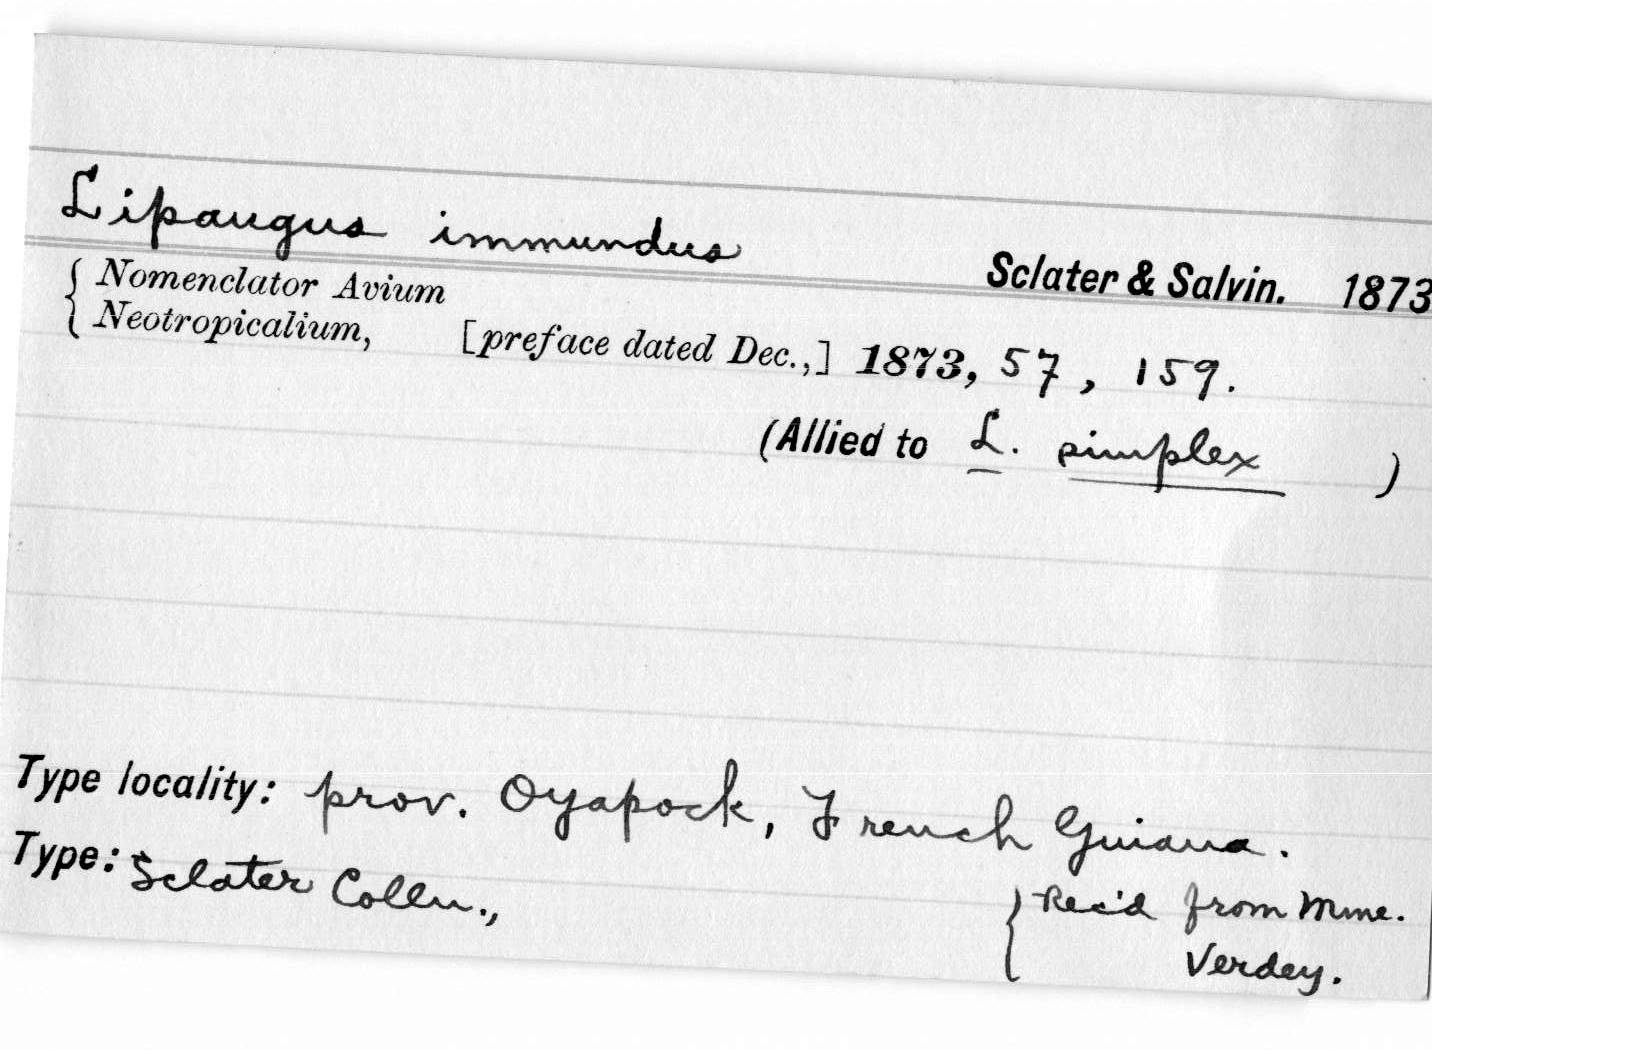 Lipaugus immundus
Sclater & Salvin. 1873
{ Nomenclator Avium
Neotropicalium, [preface dated Dec.,] 1873, 57, 159.
(Allied to L. simplex )
Type locality: prov. Oyapock, French Guiana.
Type: Sclater Colln.,
{ Rec'd from Mme.
Verdey.